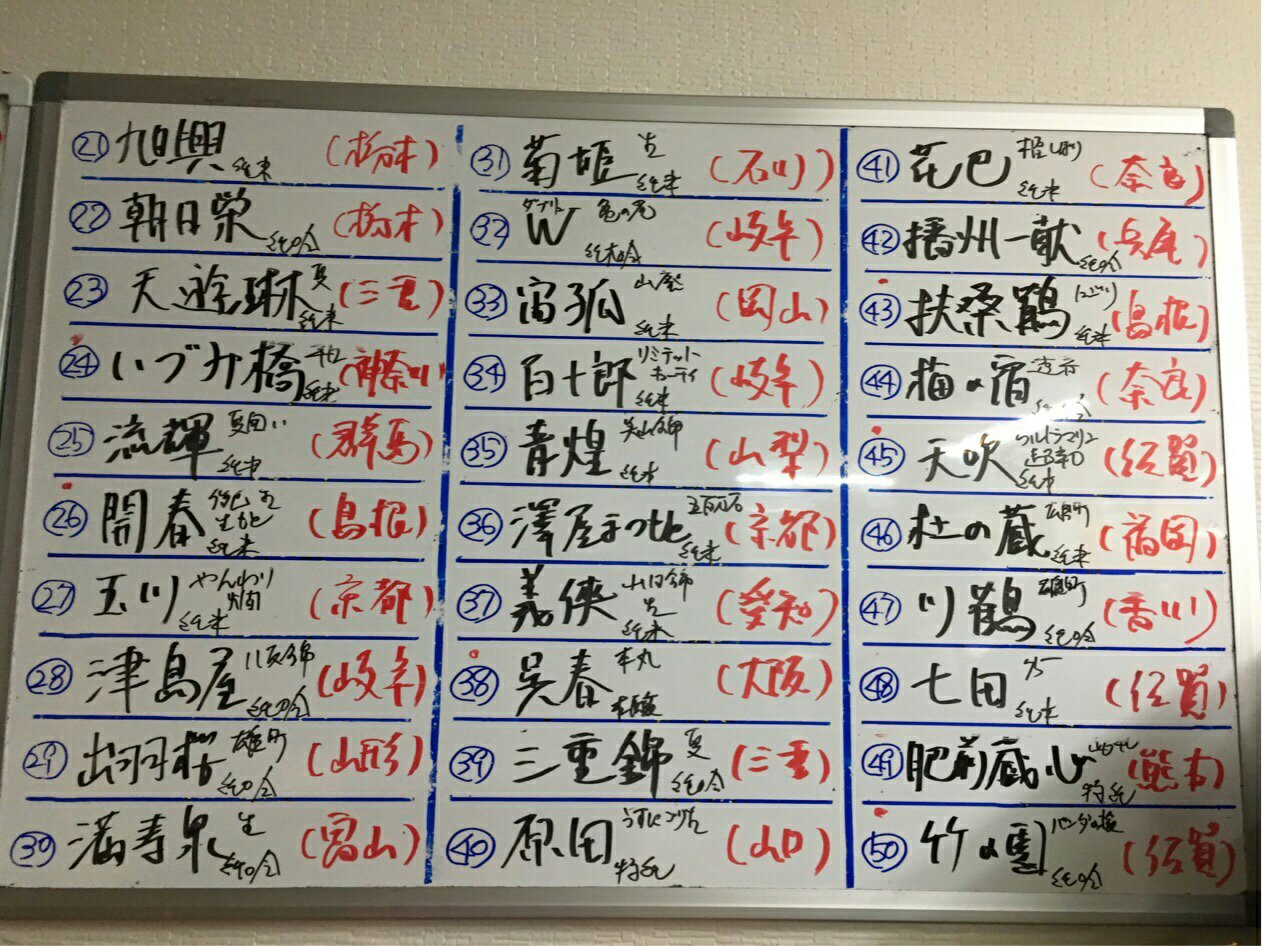 ㉑ 旭興 純米 (栃木)
㉒ 朝日榮 純吟 (栃木)
㉓ 天遊琳 夏 純米 (三重)
㉔ いづみ橋 純米 (神奈川)
㉕ 流輝 夏囲い 純米 (群馬)
㉖ 開春 生もと 純米 (島根)
㉗ 玉川 やんわり 純米 (京都)
㉘ 津島屋 純吟 (岐阜)
㉙ 出羽桜 雄町 純吟 (山形)
㉚ 満寿泉 生 純吟 (富山)
㉛ 菊姫 生 純米 (石川)
㉜ W ダブリュー 亀の尾 純米吟 (岐阜)
㉝ 富 山廃 純米 (岡山)
㉞ 百十郎 純米 (岐阜)
㉟ 青煌 美山錦 純米 (山梨)
㊱ 澤屋まつもと 五百万石 純米 (京都)
㊲ 義侠 山田錦 生 純米 (愛知)
㊳ 呉春 本丸 本醸 (大阪)
㊴ 三重錦 夏 純吟 (三重)
㊵ 原田 うすにごり生 特純 (山口)
㊶ 花巴 純米 (奈良)
㊷ 播州一献 純吟 (兵庫)
㊸ 扶桑鶴 にごり 純米 (島根)
㊹ 梅の宿 (奈良)
㊺ 天吹 ウルトラマリン 超辛口 純米 (佐賀)
㊻ 杜の蔵 雄町 純米 (福岡)
㊼ 川鶴 雄町 純吟 (香川)
㊽ 七田 純米 (佐賀)
㊾ 肥前蔵心 特純 (熊本)
㊿ 竹の園 パンダの 純吟 (佐賀)